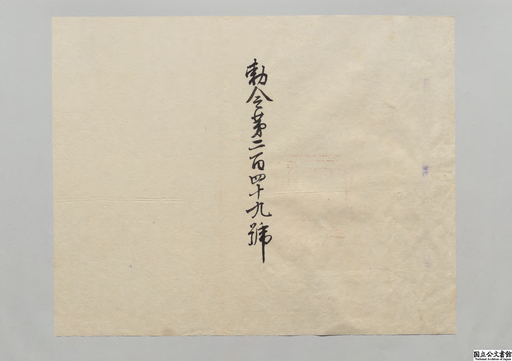 勅令第二百四十九號
国立公文書館
National Archives of Japan